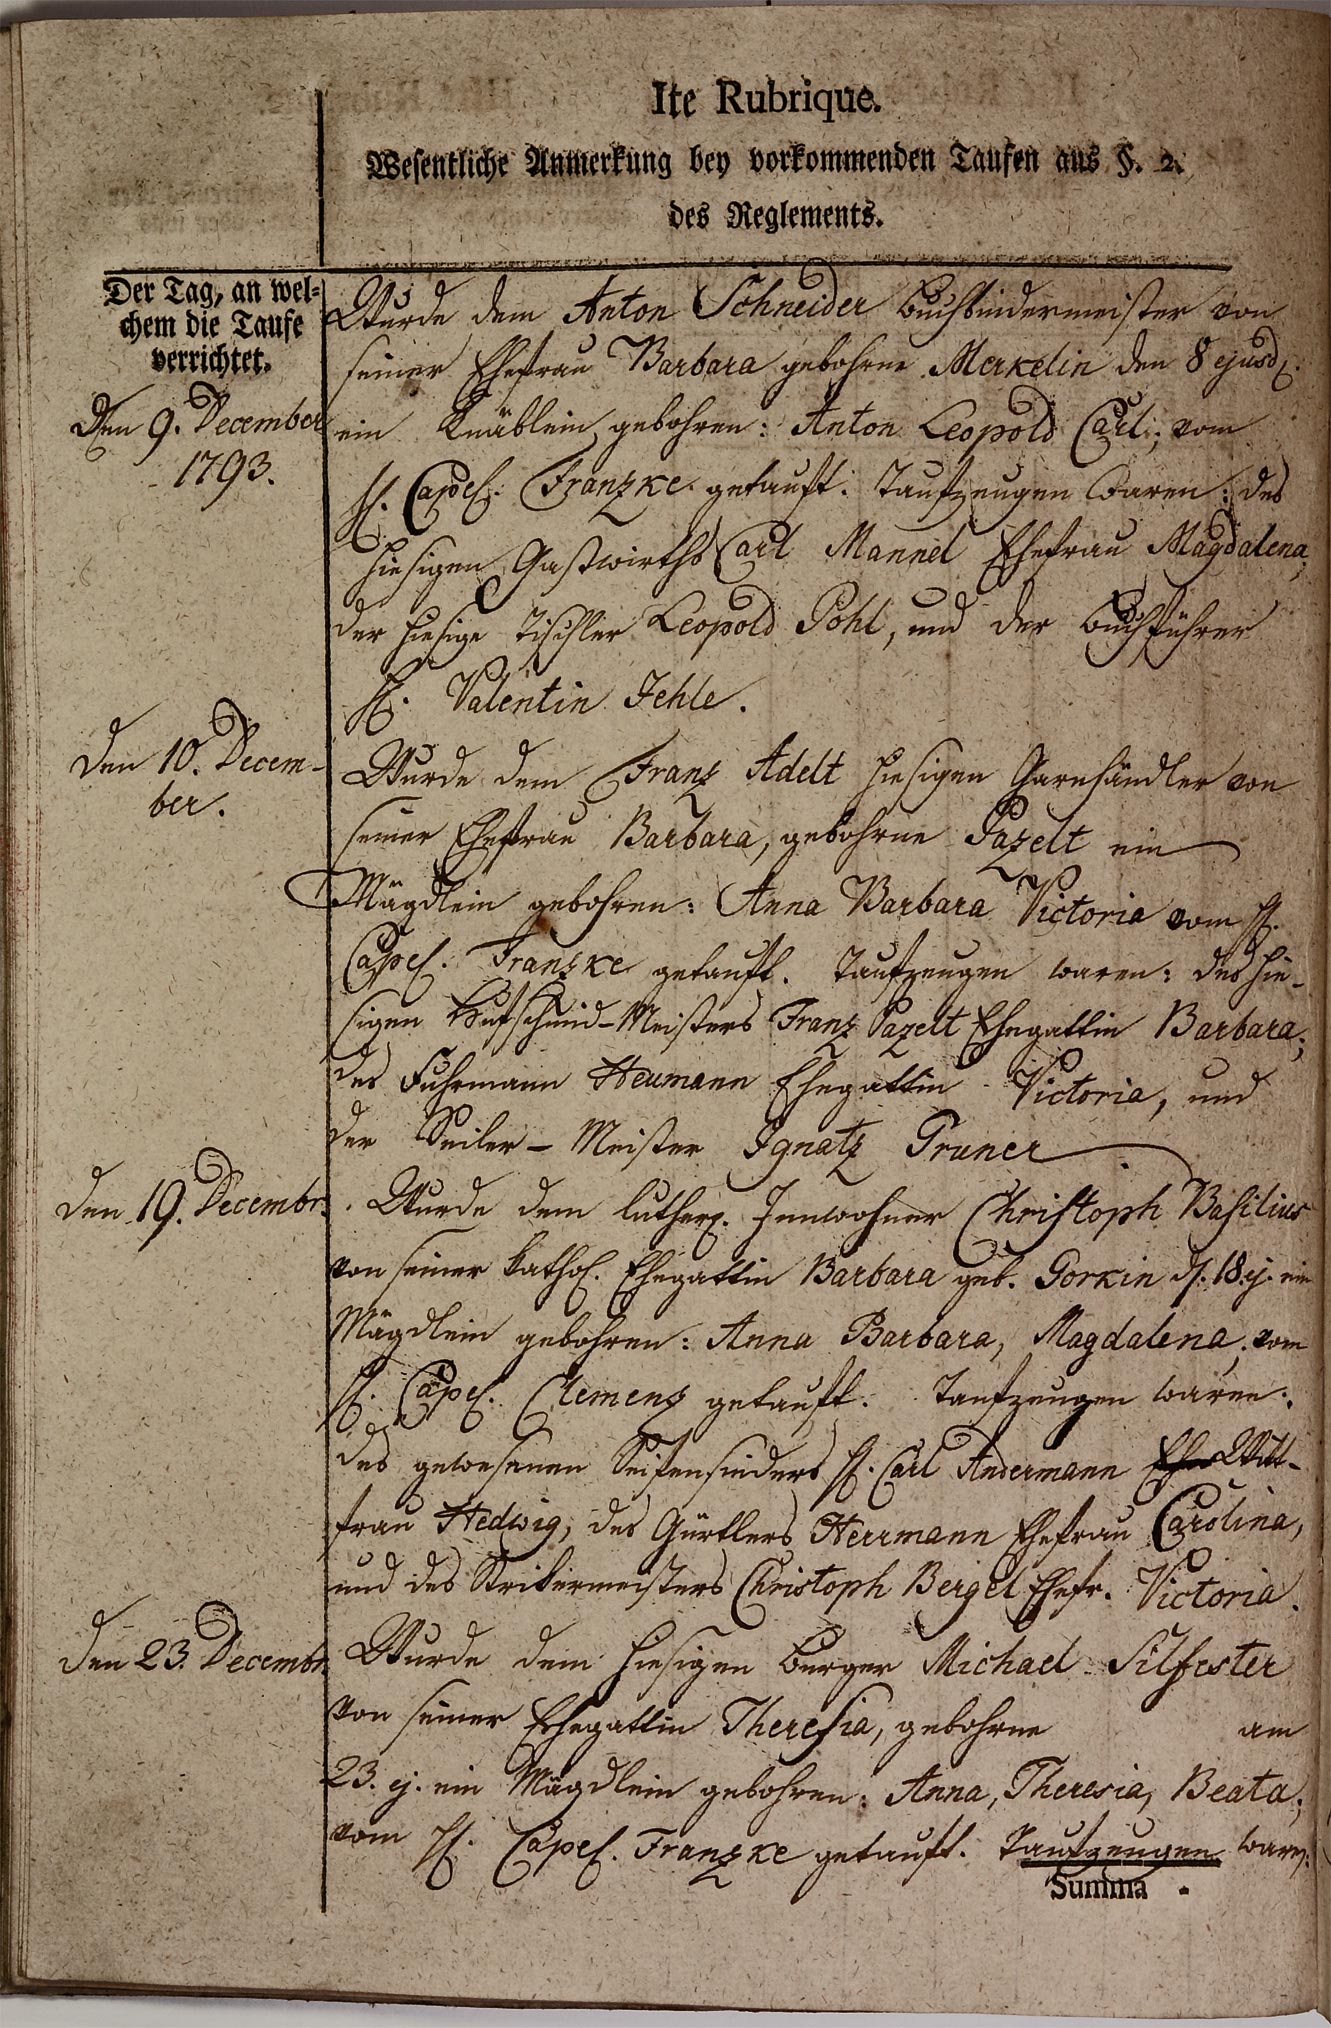 Ite Rubrique.
Wesentliche Anmerkung bey vorkommenden Taufen aus §. 2.
des Reglements.
Der Tag, an wel-
chem die Taufe
verrichtet.
Den 9. December
1793.
Wurde dem Anton Schneider Buchbindermeister von
seiner Ehefrau Barbara gebohrne Merkelin den 8 ejusd.
ein Knäblein gebohren: Anton Leopold Carl; vom
H. Capel. Franzke getauft. Taufzeugen waren: des
hiesigen Gastwirths Carl Mannel Ehefrau Magdalena;
der hiesige Tischler Leopold Pohl, und der Buchführer
H. Valentin Jehle.
Den 10. Decem-
ber.
Wurde dem Franz Adelt hiesigen Garnhändler von
seiner Ehefrau Barbara, gebohrne Pazelt ein
Mägdlein gebohren: Anna Barbara Victoria vom H.
Capel. Franzke getauft. Taufzeugen waren: des hie-
sigen Hufschmid-Meisters Franz Pazelt Ehegattin Barbara;
des Fuhrmann Heumann Ehegattin Victoria, und
der Seiler-Meister Ignatz Pruner
Den 19. Decembr.
Wurde dem luther. Innwohner Christoph Basilius
von seiner kathol. Ehegattin Barbara geb. Gorkin d. 18. ej. ein
Mägdlein gebohren: Anna Barbara, Magdalena; vom
H. Capel. Clemenz getauft. Taufzeugen waren:
des gewesenen Seifensieders H. Carl Andermann Ehe Witt-
frau Hedwig, des Gürtlers Herrmann Ehefrau Carolina,
und des Strikermeisters Christoph Bergel Ehefr. Victoria.
Den 23. Decembr.
Wurde dem hiesigen Burger Michael Silfester
von seiner Ehegattin Theresia, gebohrne am
23. ej. ein Mägdlein gebohren: Anna, Theresia, Beata;
vom H. Capel. Franzke getauft. Taufzeugen waren:
Summa